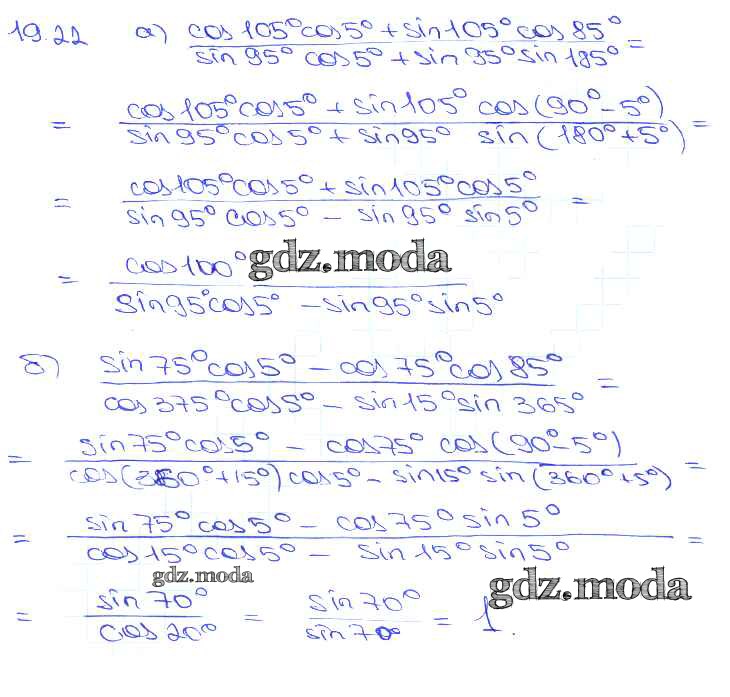 19.22 а) cos 105° cos 5° + sin 105° cos 85° / sin 95° cos 5° + sin 95° sin 185° =
= cos 105° cos 5° + sin 105° cos (90° - 5°) / sin 95° cos 5° + sin 95° sin (180° + 5°) =
= cos 105° cos 5° + sin 105° cos 5° / sin 95° cos 5° - sin 95° sin 5° =
= cos 100° / sin 95° cos 5° - sin 95° sin 5°
gdz.moda
б) sin 75° cos 5° - cos 75° cos 85° / cos 375° cos 5° - sin 15° sin 365° =
= sin 75° cos 5° - cos 75° cos (90° - 5°) / cos (360° + 15°) cos 5° - sin 15° sin (360° + 5°) =
= sin 75° cos 5° - cos 75° sin 5° / cos 15° cos 5° - sin 15° sin 5° =
gdz.moda
gdz.moda
= sin 70° / cos 20° = sin 70° / sin 70° = 1.